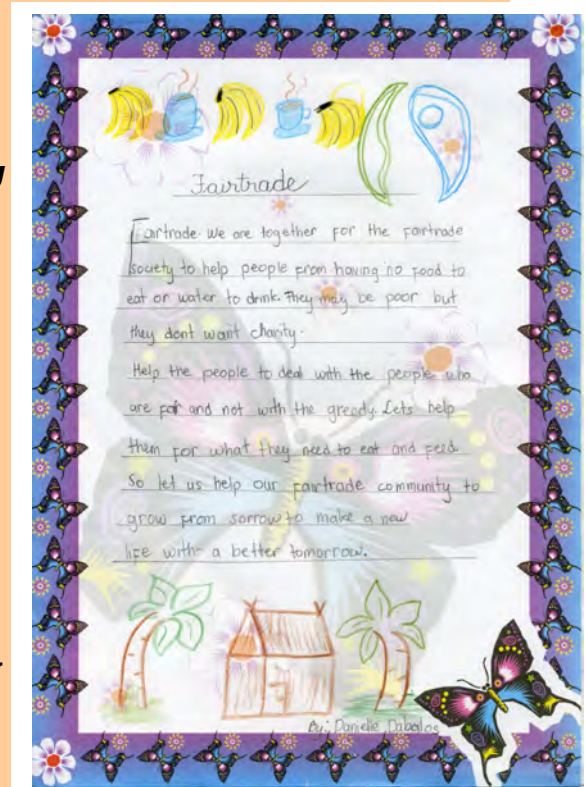 Fairtrade
Fairtrade. We are together for the fairtrade
society to help people from having no food to
eat or water to drink. They may be poor but
they dont want charity.
Help the people to deal with the people who
are fair and not with the greedy. Lets help
them for what they need to eat and feed.
So let us help our fairtrade community to
grow from sorrow to make a new
life with a better tomorrow.
By: Danielle